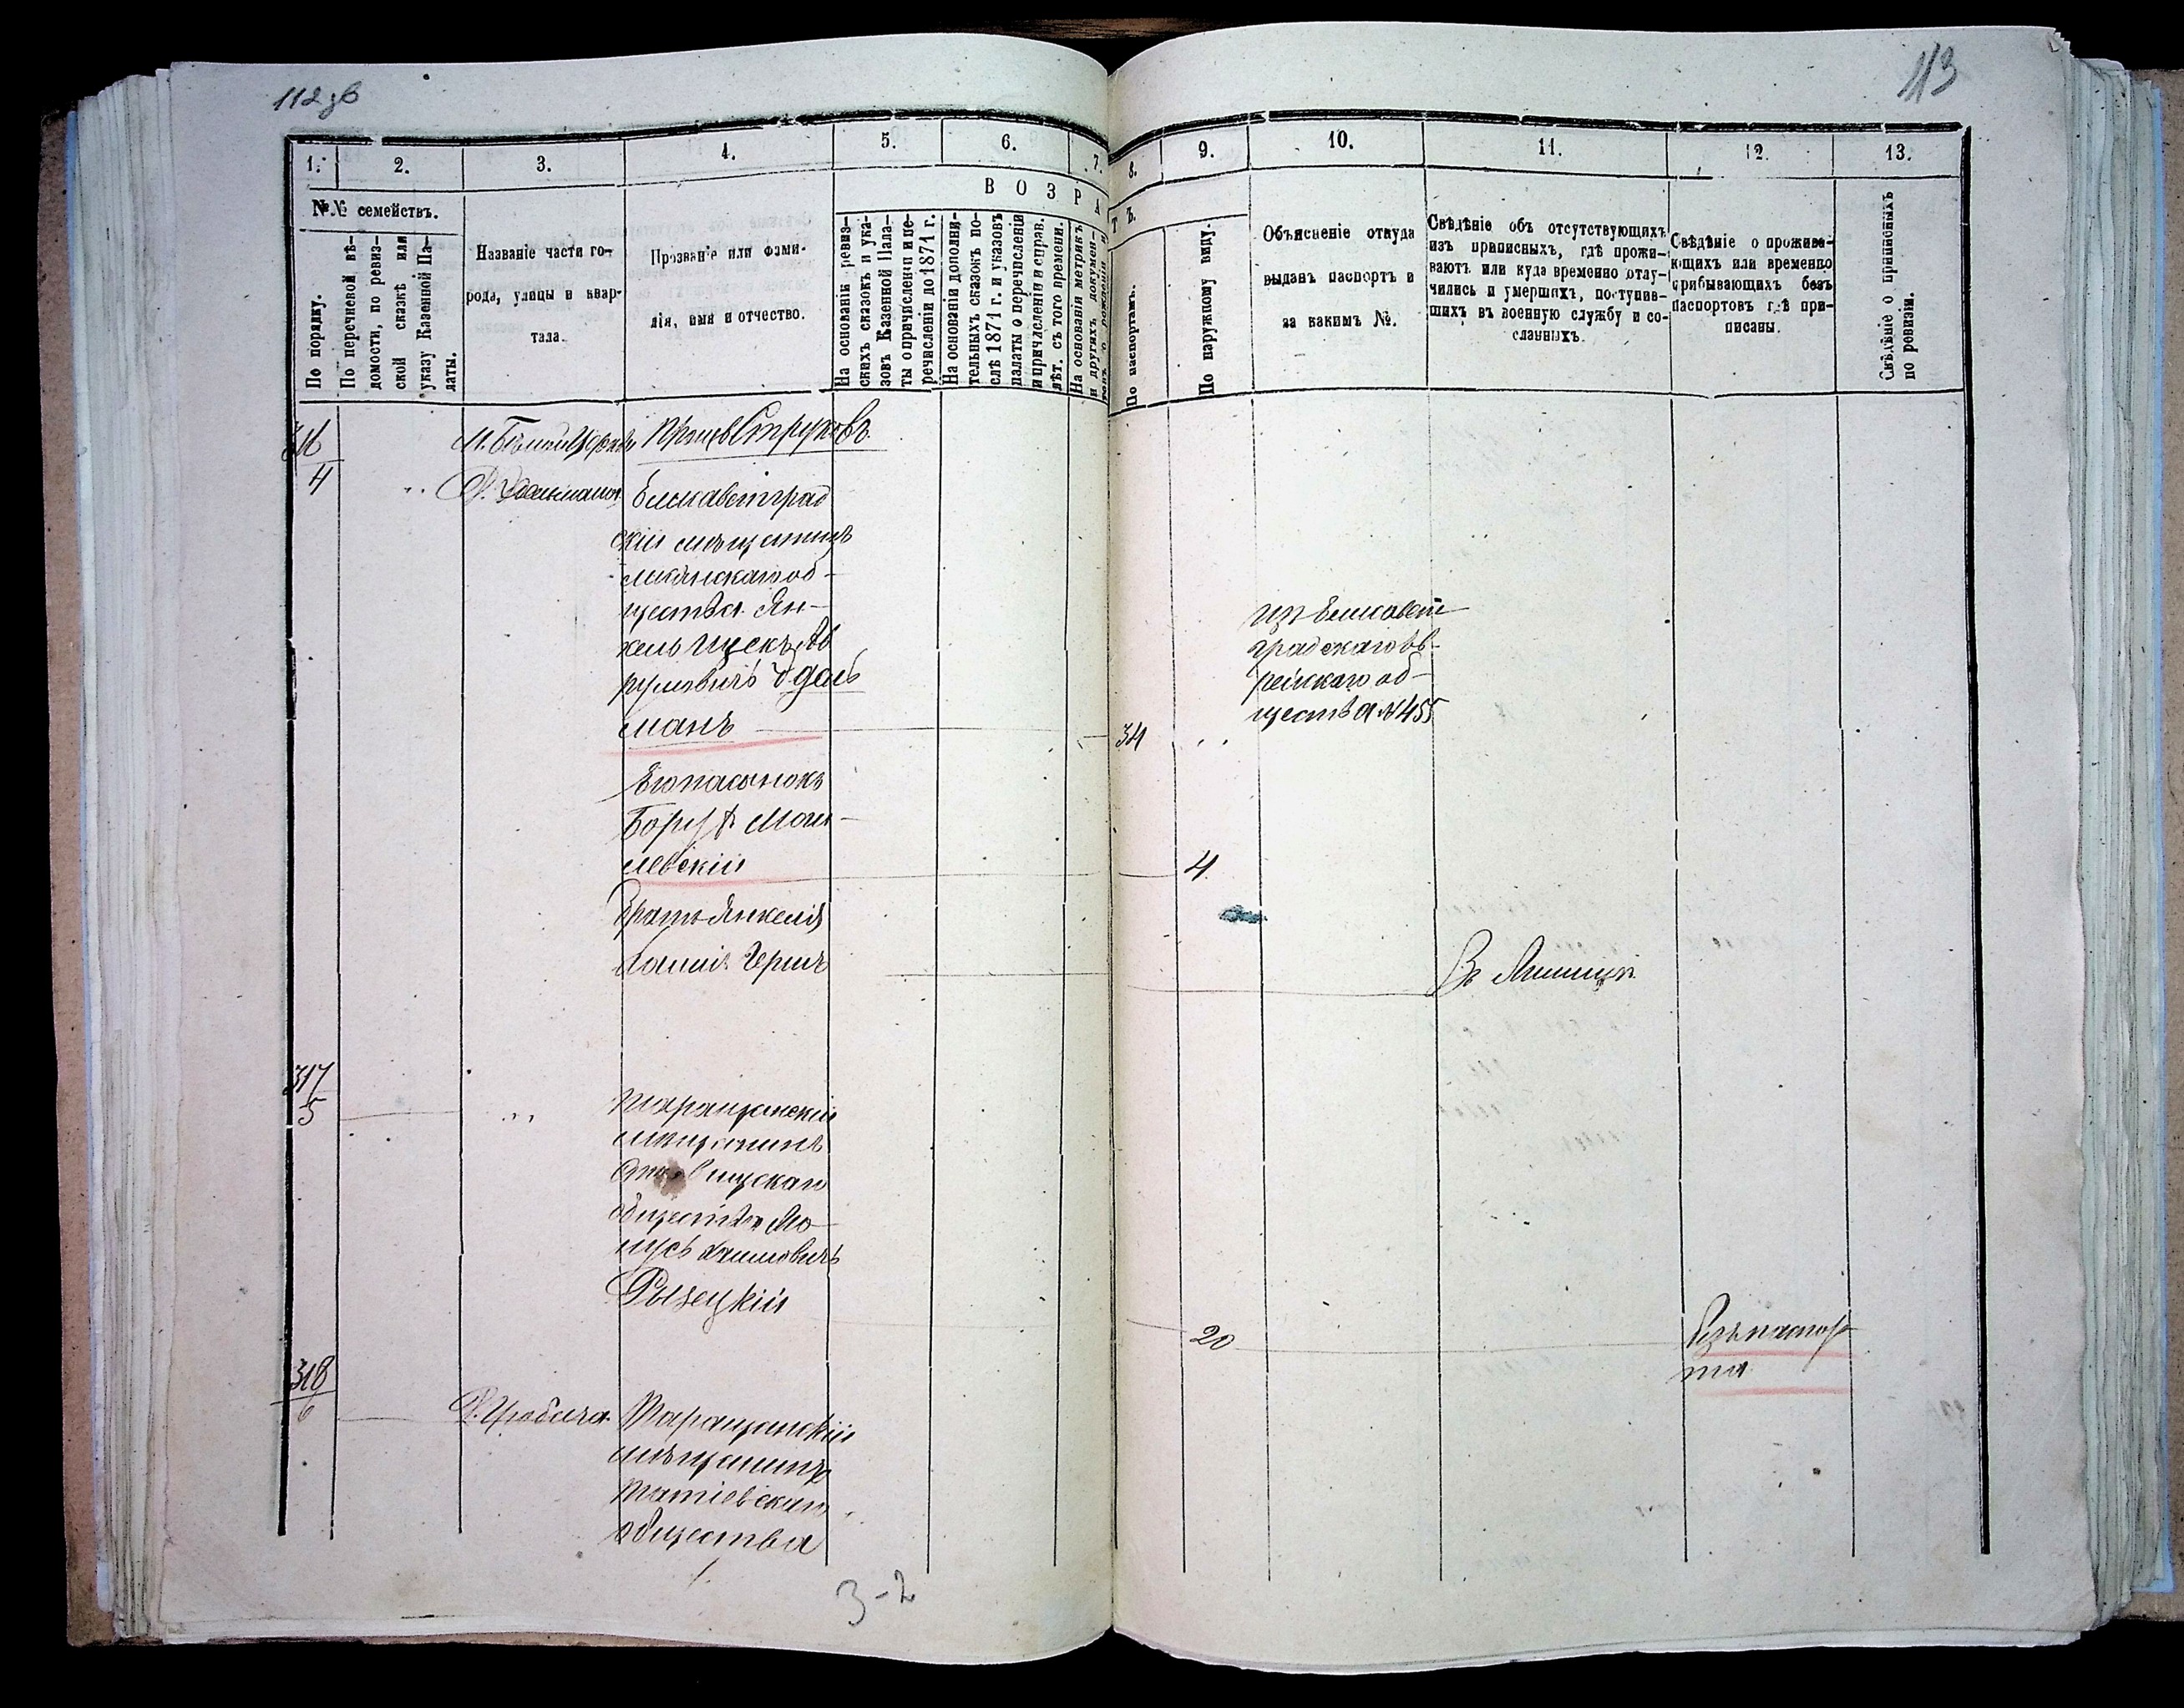 112 зв
113
1.
2.
3.
4.
5.
6.
7.
8.
9.
10.
11.
12.
13.
№№ семействъ.
ВОЗРА
ТЪ.
По порядку.
По перечневой вѣ-
домости, по ревиз-
ской сказкѣ или
указу Казенной Па-
латы.
Названіе части го-
рода, улицы и квар-
тала.
Прозваніе или фами-
лія, имя и отчество.
На основаніи ревиз-
скихъ сказокъ и ука-
зовъ Казенной Пала-
ты о причисленіи и пе-
речисленіи до 1871 г.
На основаніи дополни-
тельныхъ сказокъ по-
слѣ 1871 г. и указовъ
палаты о перечисленіи
и причисленіи и справ.
лѣт. съ того времени.
На основаніи метрикъ
и другихъ докумен-
товъ о рожденіи
По паспортамъ.
По наружному виду.
Объясненіе откуда
выданъ паспортъ и
за какимъ №.
Свѣдѣніе объ отсутствующихъ
изъ приписныхъ, гдѣ прожи-
ваютъ или куда временно отлу-
чились и умершихъ, поступив-
шихъ въ военную службу и со-
сланныхъ.
Свѣдѣніе о прожива-
ющихъ или временно
прибывающихъ безъ
паспортовъ гдѣ при-
писаны.
Свѣдѣніе о приписныхъ
по ревизіи.
316
4
М. Бѣлая Церковь
Елисаветград
скій мѣщанинъ
общества Ян-
кель Ицекъ Ав
румовичъ Эдель
манъ
34
изъ Елисавет
градскаго Ев-
рейскаго об-
щества № 455
Его пасынокъ
Борух Моги-
левскій
4
Братъ Янкеля
Хаимъ Гершъ
317
5
Таращанскій
мѣщанинъ
Ставищскаго
общества Мо-
шусь Хаимовичъ
20
Безъ паспор
та
318
6
Таращанскій
мѣщанинъ
Татіевскаго
общества
3-2